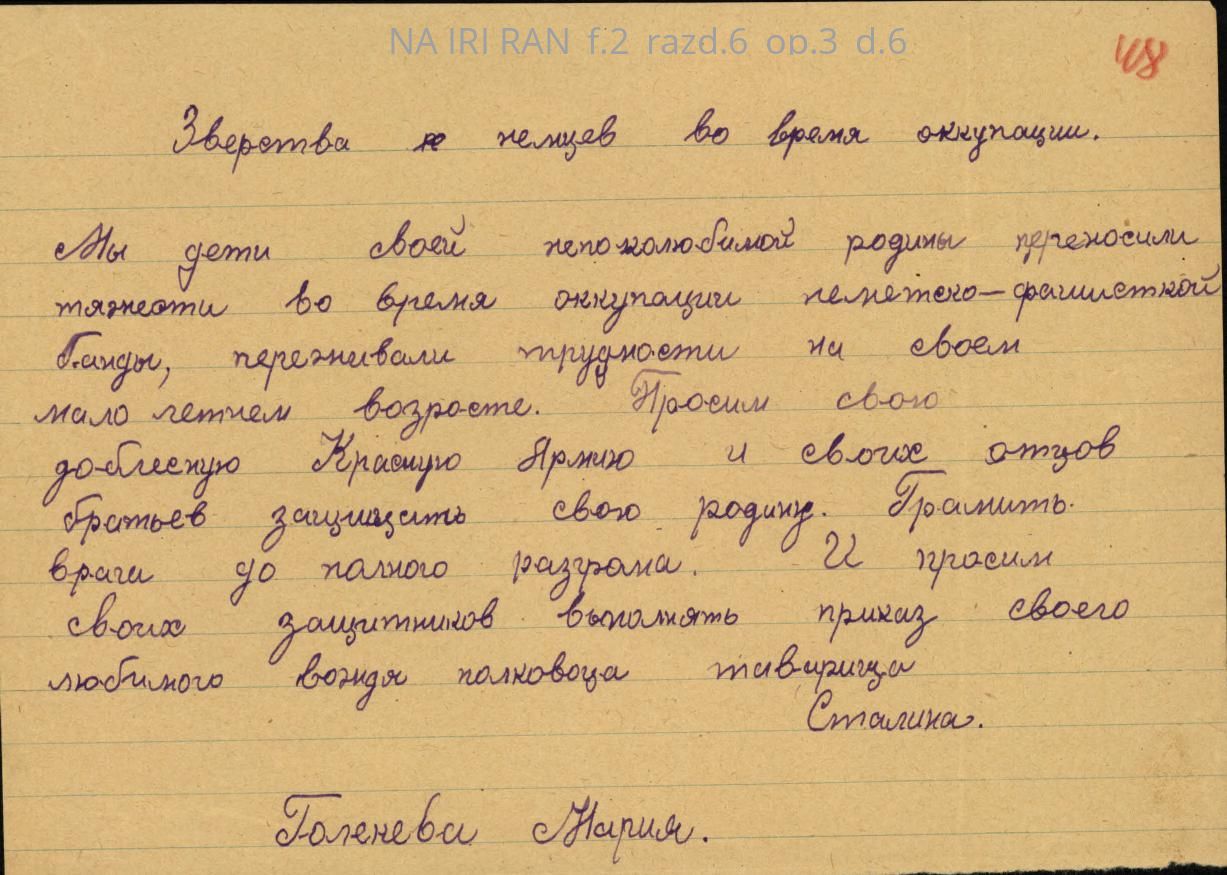 NA IRI RAN f.2 razd.6 op.3 d.6
48
Зверства не немцев во время оккупации.
Мы дети своей непоколюбимой родины переносили
тяжести во время оккупации неметско-фашисткой
банды, переживали трудности на своем
мало летнем возросте. Просим свою
доблесную Красную Армию и своих отцов
братьев защищать свою родину. Грамить
врага до полного разгрома. И просим
своих защитников выполнять приказ своего
любимого вождя полковоца таварища
Сталина.
Голенева Мария.